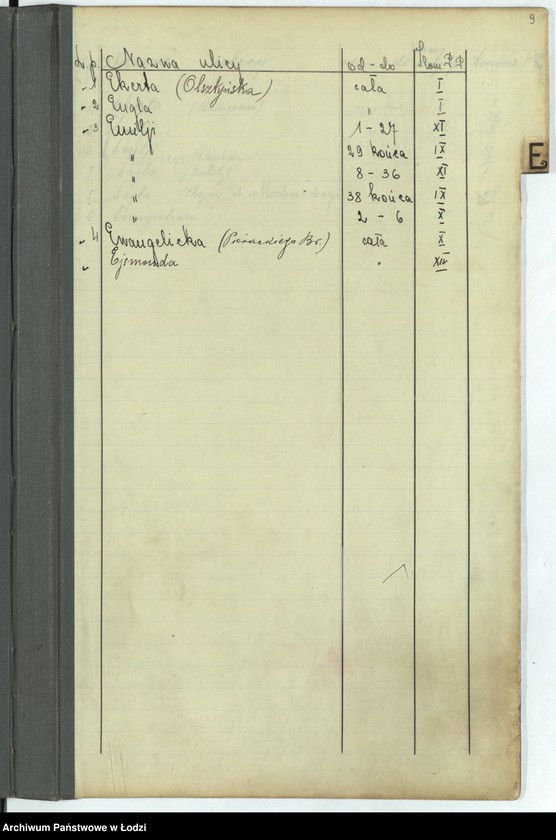 9
L.p. Nazwa ulicy od - do Kom. P.P.
1 Ekerta (Olsztyńska) cała I
2 Engla " I
3 Emilji 1 - 27 XI
" 29 końca IX
" 8 - 36 XI
" 38 końca IX
" 2 - 6 X
4 Ewangelicka (Pierackiego Br.) cała X
Ejsmonda " XIV
E
Archiwum Państwowe w Łodzi